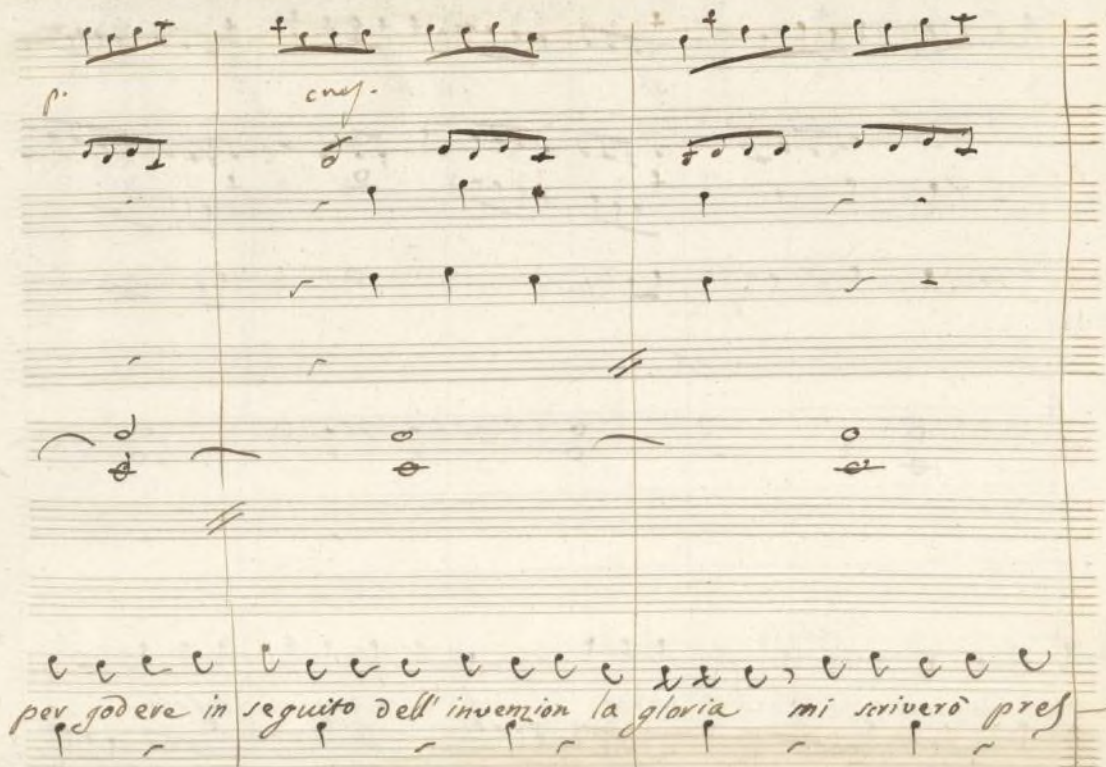 p. cres.
per godere in seguito dell' invenzion la gloria mi scriverò pres